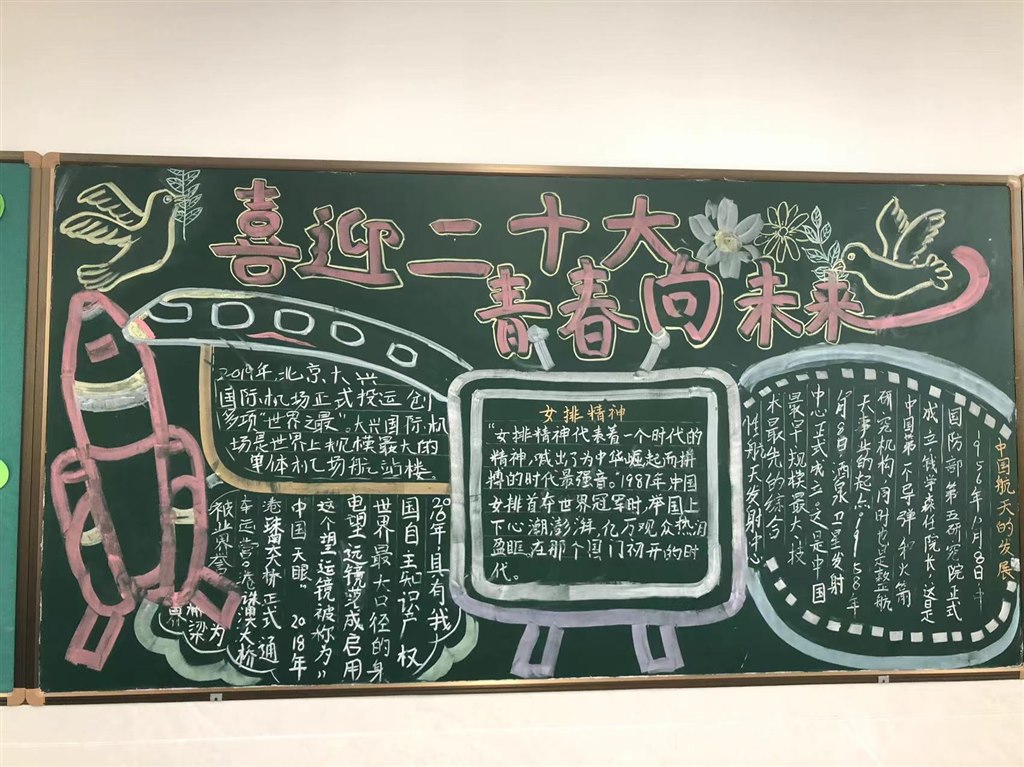 喜迎二十大
青春向未来
2019年,北京大兴
国际机场正式投运创
多项“世界之最”。大兴国际机
场是世界上规模最大的
单体机场航站楼。
2016年具有我
国自主知识产权
世界最大口径的身
电望远镜落成启用
这个望远镜被称为“
中国天眼”2018年
港珠澳大桥正式通
车运营。港珠澳大桥
被业界
为
梁
女排精神
“女排精神代表着一个时代的
精神,喊出了为中华崛起而拼
搏的时代最强音。1987年中国
女排首夺世界冠军时,举国上
下心潮澎湃,亿万观众热泪
盈眶,在那个国门初开的时
代。
中国航天的发展
1956年10月8日
国防部第五研究院正式
成立,钱学森任院长,这是
中国第一个导弹和火箭
研究机构,同时也是航
天事业的起点。1958年
月8日酒泉卫星发射
中心正式成立,这是中国
最早规模最大,技
术最先的综合
性航天发射中心